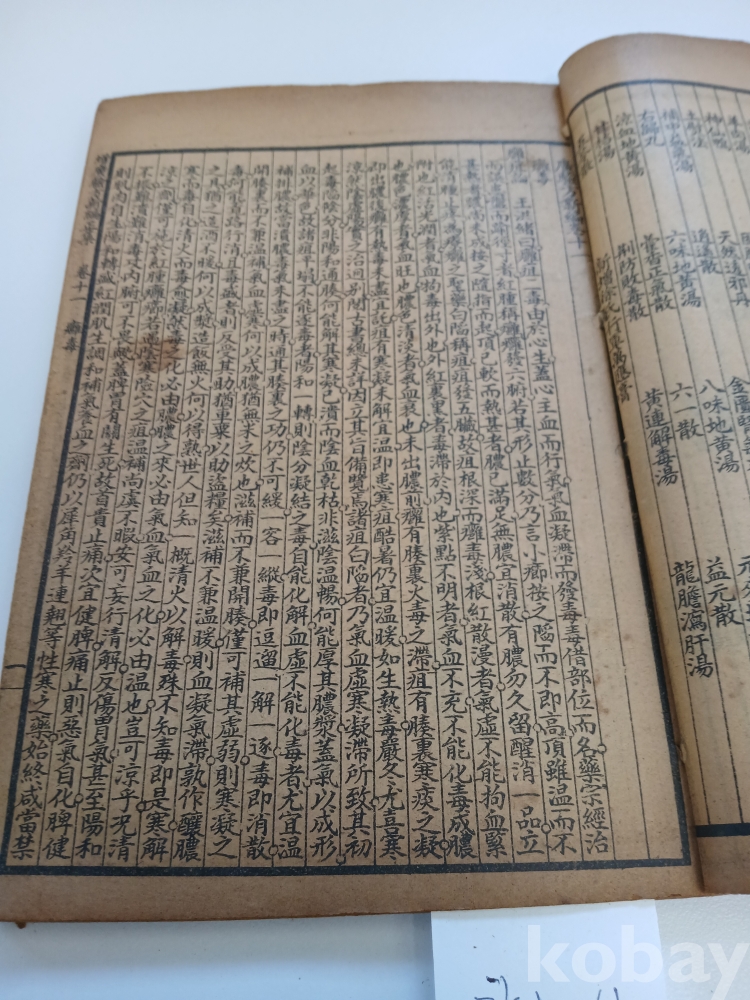 橘中益氣湯
右歸丸
涼血地黃湯
天然造邪丹
逍遙散
六味地黃湯
藿香正氣散
荊防敗毒散
金
八味地黃湯
六一散
黃連解毒湯
益元散
龍膽瀉肝湯
十一
癰毒
王洪緒曰癰疽二毒由於心生蓋心主血而行氣氣血凝滯而發毒毒借部位而名藥宗經治
得之者紅腫稱癰癰發六腑若其形止數分乃言小癤按之陷而不即高頂雖溫而不
甚熱者膿尚未成按之隨指而起頂已軟而熱甚者膿已滿足無膿宜消散有膿勿久留醒消一品立
能消腫止疼為療癰之聖藥白陷稱疽疽發五臟故疽根深而癰毒淺根紅散漫者氣虛不能拘血緊
附也紅活光潤者氣血拘毒出外也外紅裏黑者毒滯於內也紫點不明者氣血不充不能化毒成膿
也膿色濃厚者氣血旺也膿色清淡者氣血衰也未出膿前癰有腠裏火毒之滯疽有腠裏寒痰之凝
即出膿後癰有熱毒未盡宜託疽有寒凝未解宜溫即患寒疽酷暑仍宜溫暖如生熱毒嚴冬尤喜寒
涼之治迥別閱古書總未詳因立其旨備覽焉諸疽白陷者乃氣血虛寒凝滯所致其初
起毒陷陰分非陽和通腠何能解其寒凝已潰而陰血乾枯非滋陰溫暢何能厚其膿漿蓋氣以成形
血以華色故諸疽平塌不能逐毒者陽和一轉則陰分凝結之毒自能化解血虛不能化毒者尤宜溫
補排膿故當潰膿毒氣未盡之時通其腠裏之功仍不可緩一容一縱毒即逗遛一解一逐毒即消散
開腠裏而不兼溫補氣血虛寒何以成膿猶無米之炊也滋補而不兼開腠僅可補其虛弱則寒凝之
毒何能覓路行消且毒盛者則反受其助猶車粟以助盜糧矣滋補不兼溫暖則血凝氣滯孰作釀膿
之具猶之造酒不暖何以成漿造飯無火何以得熟世人但知一概清火以解毒殊不知毒即是寒解
寒而毒自消清火而毒愈凝然毒之化必由膿膿之來必由氣血氣血之化必由溫也豈可涼乎況清
涼之劑僅可施於紅腫癰癤若遇陰寒險穴之疽溫補尚虞不暇安可妄行清解反傷胃氣甚至陽和
不振難潰難消毒攻內腑可不畏歟蓋脾胃有關生死故首貴止痛次宜健脾痛止則惡氣自化脾健
則肌肉自生陽和轉盛紅潤肌生調和補氣養血之劑仍以犀角羚羊連翹等性寒之藥始終咸當禁
增廣驗方新編 卷十一 癰毒 一
kobay